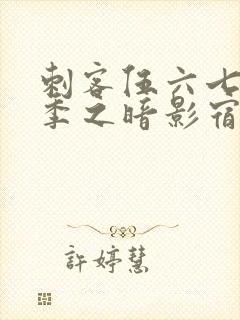 刺客伍六七
季之暗影宿
許婷慧